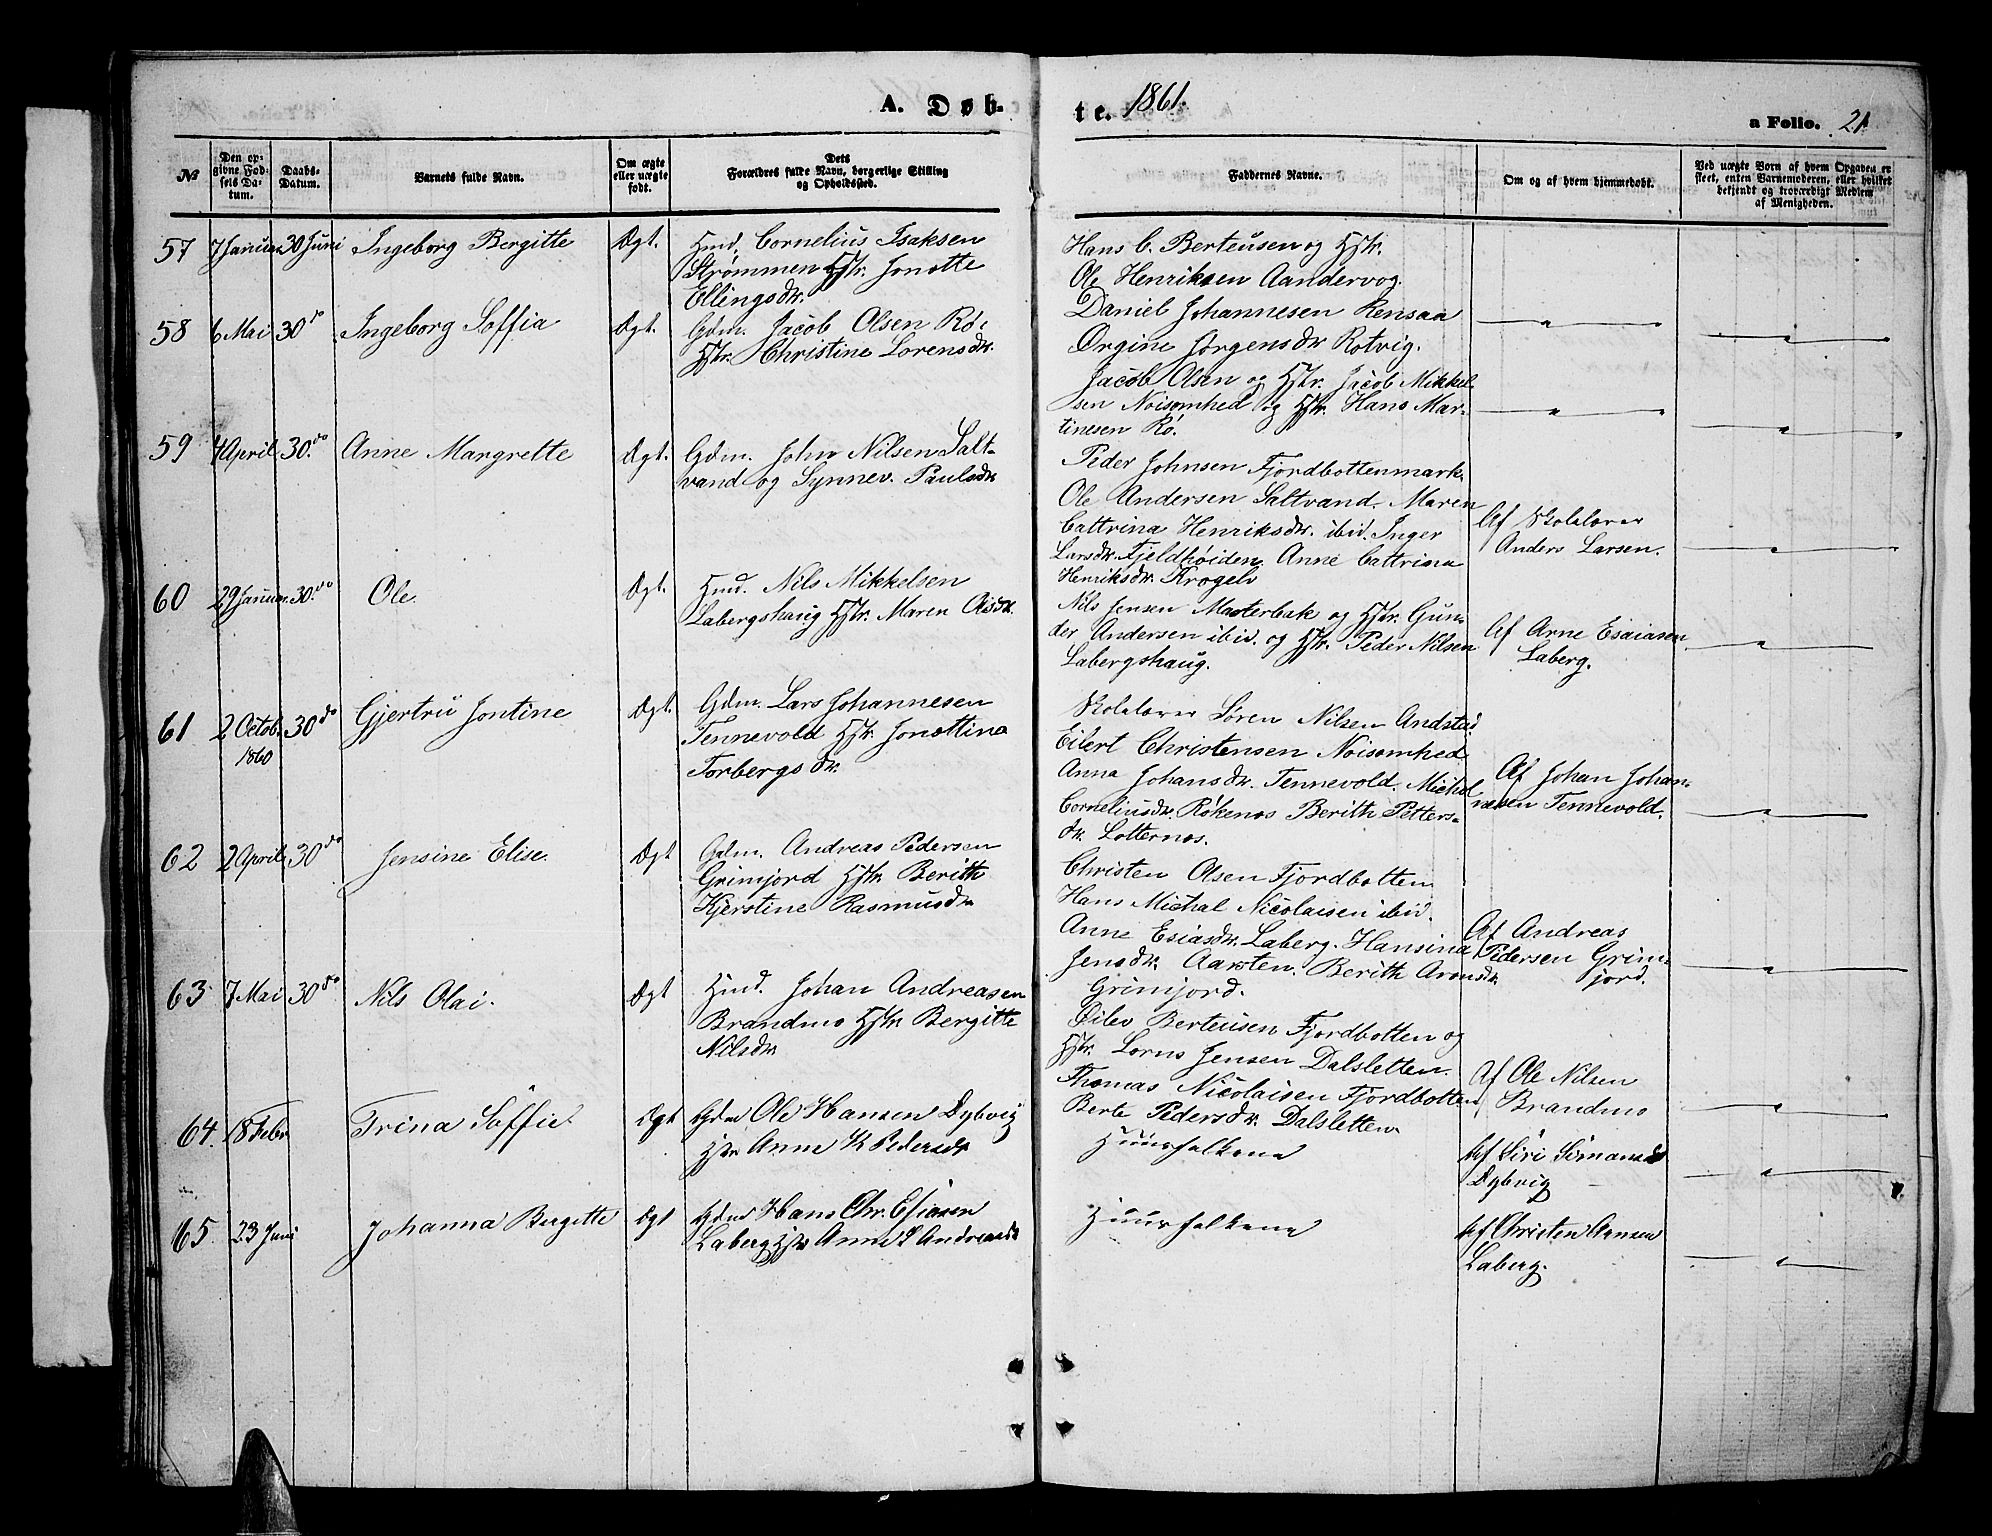 A. Døb-
te. 1861.
a Folio. 21
№
Den op-
givne Fød-
sels Da-
tum.
Daabs-
Datum.
Barnets fulde Navn.
Om ægte
eller uægte
født.
Dets
Forældres fulde Navn, borgerlige Stilling
og Opholdssted.
Faddernes Navne.
Om og af hvem hjemmedøbt.
Ved uægte Børn af hvem Opgaven er
skeet, enten Barnemoderen, eller hvilket
bekjendt og troværdigt Medlem
af Menigheden.
57 7 Januar 30 Juni Ingeborg Bergitte Ægt. Hmd. Cornelius Isaksen
Strømmen Hstr. Jonette
Ellingsdr.
Hans C. Berteusen og Hstr.
Ole Henriksen Aandervog.
Daniel Johannesen Rensaa
Ørgine Jørgensdr Rotvig.
58 6 Mai 30 do Ingeborg Soffia Ægt. Gdm. Jacob Olsen Rø,
Hstr. Christine Lorensdr.
Jacob Olsen og Hstr. Jacob Mikkel-
sen Noisomhed og Hstr. Hans Mar-
tinesen Rø.
59 4 April 30. do Anne Margrette Ægt. Gdm. John Nilsen Salt-
vand og Synnev. Paulsdr
Peder Johnsen Fjordbottenmark.
Ole Andersen Saltvand. Maren
Cattrina Henriksdr. ibid. Inger
Larsdr. Fjeldhøiden Anne Cattrina
Henriksdr. Krogelv
Af Skolelærer
Anders Larsen.
60 29 Januar 30. do Ole. Ægt. Hmd. Nils Mikkelsen
Labergshaug Hstr. Maren Olsdr.
Nils Jensen Masterbak og Hstr. Gun-
der Andersen ibid. og Hstr. Peder Nilsen
Labergshaug.
Af Arne Esaiasen
Laberg.
61 2 Octob. 30 do Gjertru Jontine Ægt. Gdm. Lars Johannesen
1860
Tennevold Hstr Jonettina
Torbergsdr.
Skolelærer Søren Nilsen Andstad
Eilert Christensen Noisomhed
Anna Johansdr. Tennevold. Michal
Corneliusdr. Røkenes Berith Petters-
dr. Lotternes.
Af Johan Johan-
nesen Tennevold.
62 2 April 30 do Jensine Elise. Ægt Gdm. Andreas Pedersen
Grimjord Hstr Berith
Kjerstine Rasmusdr
Christen Olsen Fjordbotten
Hans Michal Nicolaisen ibid.
Anne Esiasdr. Laberg. Hansina
Jensdr. Aarsten. Berith Aronsdr.
Grimjord.
Af Andreas
Pedersen Grim-
jord.
63 7 Mai 30 do Nils Olai. Ægt Hmd. Johan Andreasen
Brandmo Hstr Bergitte
Nilsdr
Eilev Berteusen Fjordbotten og
Hstr. Lorns Jensen Dalsletten.
Thomas Nicolaisen Fjordbotten
Berte Pedersdr. Dalsletten.
Af Ole Nilsen
Brandmo
64. 18 Febr Trina Soffie. Ægt Gdm Ole Hansen Dybvig
Hstr Anne K Pedersdr
Huusfolkene
Af Siri Simonsd
Dybvig
65. 23 Juni Johanna Bergitte Ægt Gdm Hans Chr. Esiasen
Laberg Hstr Anne Andreasdr
Huusfolkene
Af Christen Hansen
Laberg.